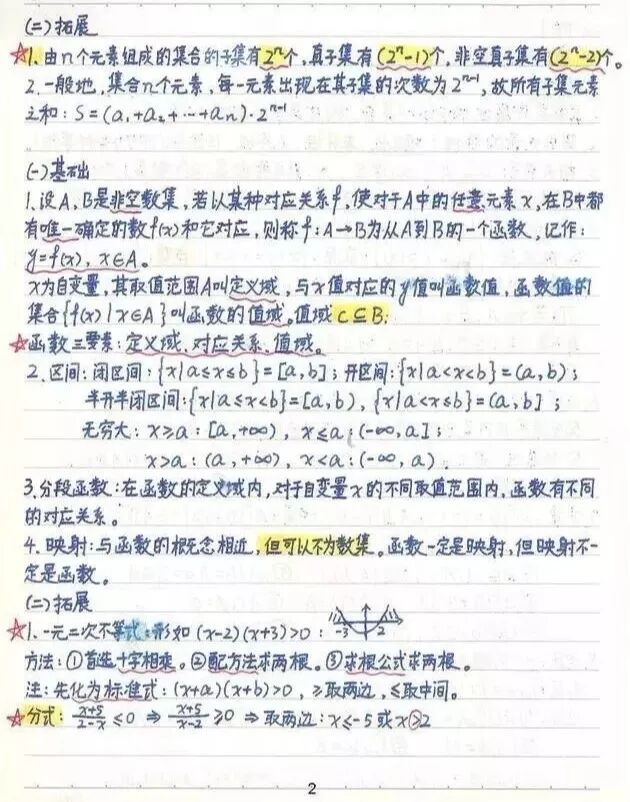 (二)拓展
☆1.由n个元素组成的集合的子集有2ⁿ个,真子集有(2ⁿ-1)个,非空真子集有(2ⁿ-2)个。
2.一般地,集合n个元素,每一元素出现在其子集的次数为2ⁿ⁻¹,故所有子集元素
之和:S=(a₁+a₂+…+aₙ)·2ⁿ⁻¹
(一)基础
1.设A,B是非空数集,若以某种对应关系f,使对于A中的任意元素x,在B中都
有唯一确定的数f(x)和它对应,则称f:A→B为从A到B的一个函数,记作:
y=f(x),x∈A。
x为自变量,其取值范围A叫定义域,与x值对应的y值叫函数值,函数值的
集合{f(x)|x∈A}叫函数的值域。值域C⊆B;
☆函数三要素:定义域、对应关系、值域。
2.区间:闭区间:{x|a≤x≤b}=[a,b];开区间:{x|a<x<b}=(a,b);
半开半闭区间:{x|a≤x<b}=[a,b),{x|a<x≤b}=(a,b];
无穷大:x≥a:[a,+∞),x≤a:(-∞,a];
x>a:(a,+∞),x<a:(-∞,a)。
3.分段函数:在函数的定义域内,对于自变量x的不同取值范围内,函数有不同
的对应关系。
4.映射:与函数的概念相近,但可以不为数集。函数一定是映射,但映射不一
定是函数。
(二)拓展
☆1.一元二次不等式:形如(x-2)(x+3)>0: -3 2
方法:①首选十字相乘。②配方法求两根。③求根公式求两根。
注:先化为标准式:(x+a)(x+b)>0,≥取两边,≤取中间。
☆分式:(x+5)/(2-x)≤0⇒(x+5)/(x-2)≥0⇒取两边:x≤-5或x>2
2